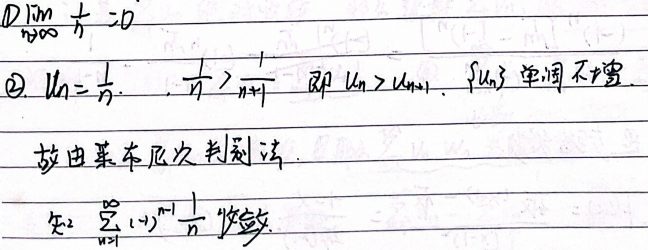 ① lim n→∞ 1/n =0
② Un = 1/n. 1/n > 1/(n+1) 即 Un > Un+1. {Un} 单调不增.
故由莱布尼次判别法.
知 ∑_{n=1}^{∞} (-1)^{n-1} 1/n 收敛.